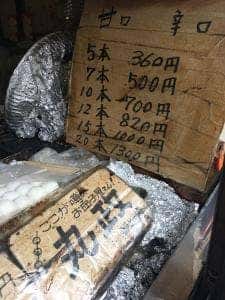 甘口 辛口
5本 360円
7本 500円
10本 700円
12本 820円
15本 1000円
20本 1300円
ここが
丸
円